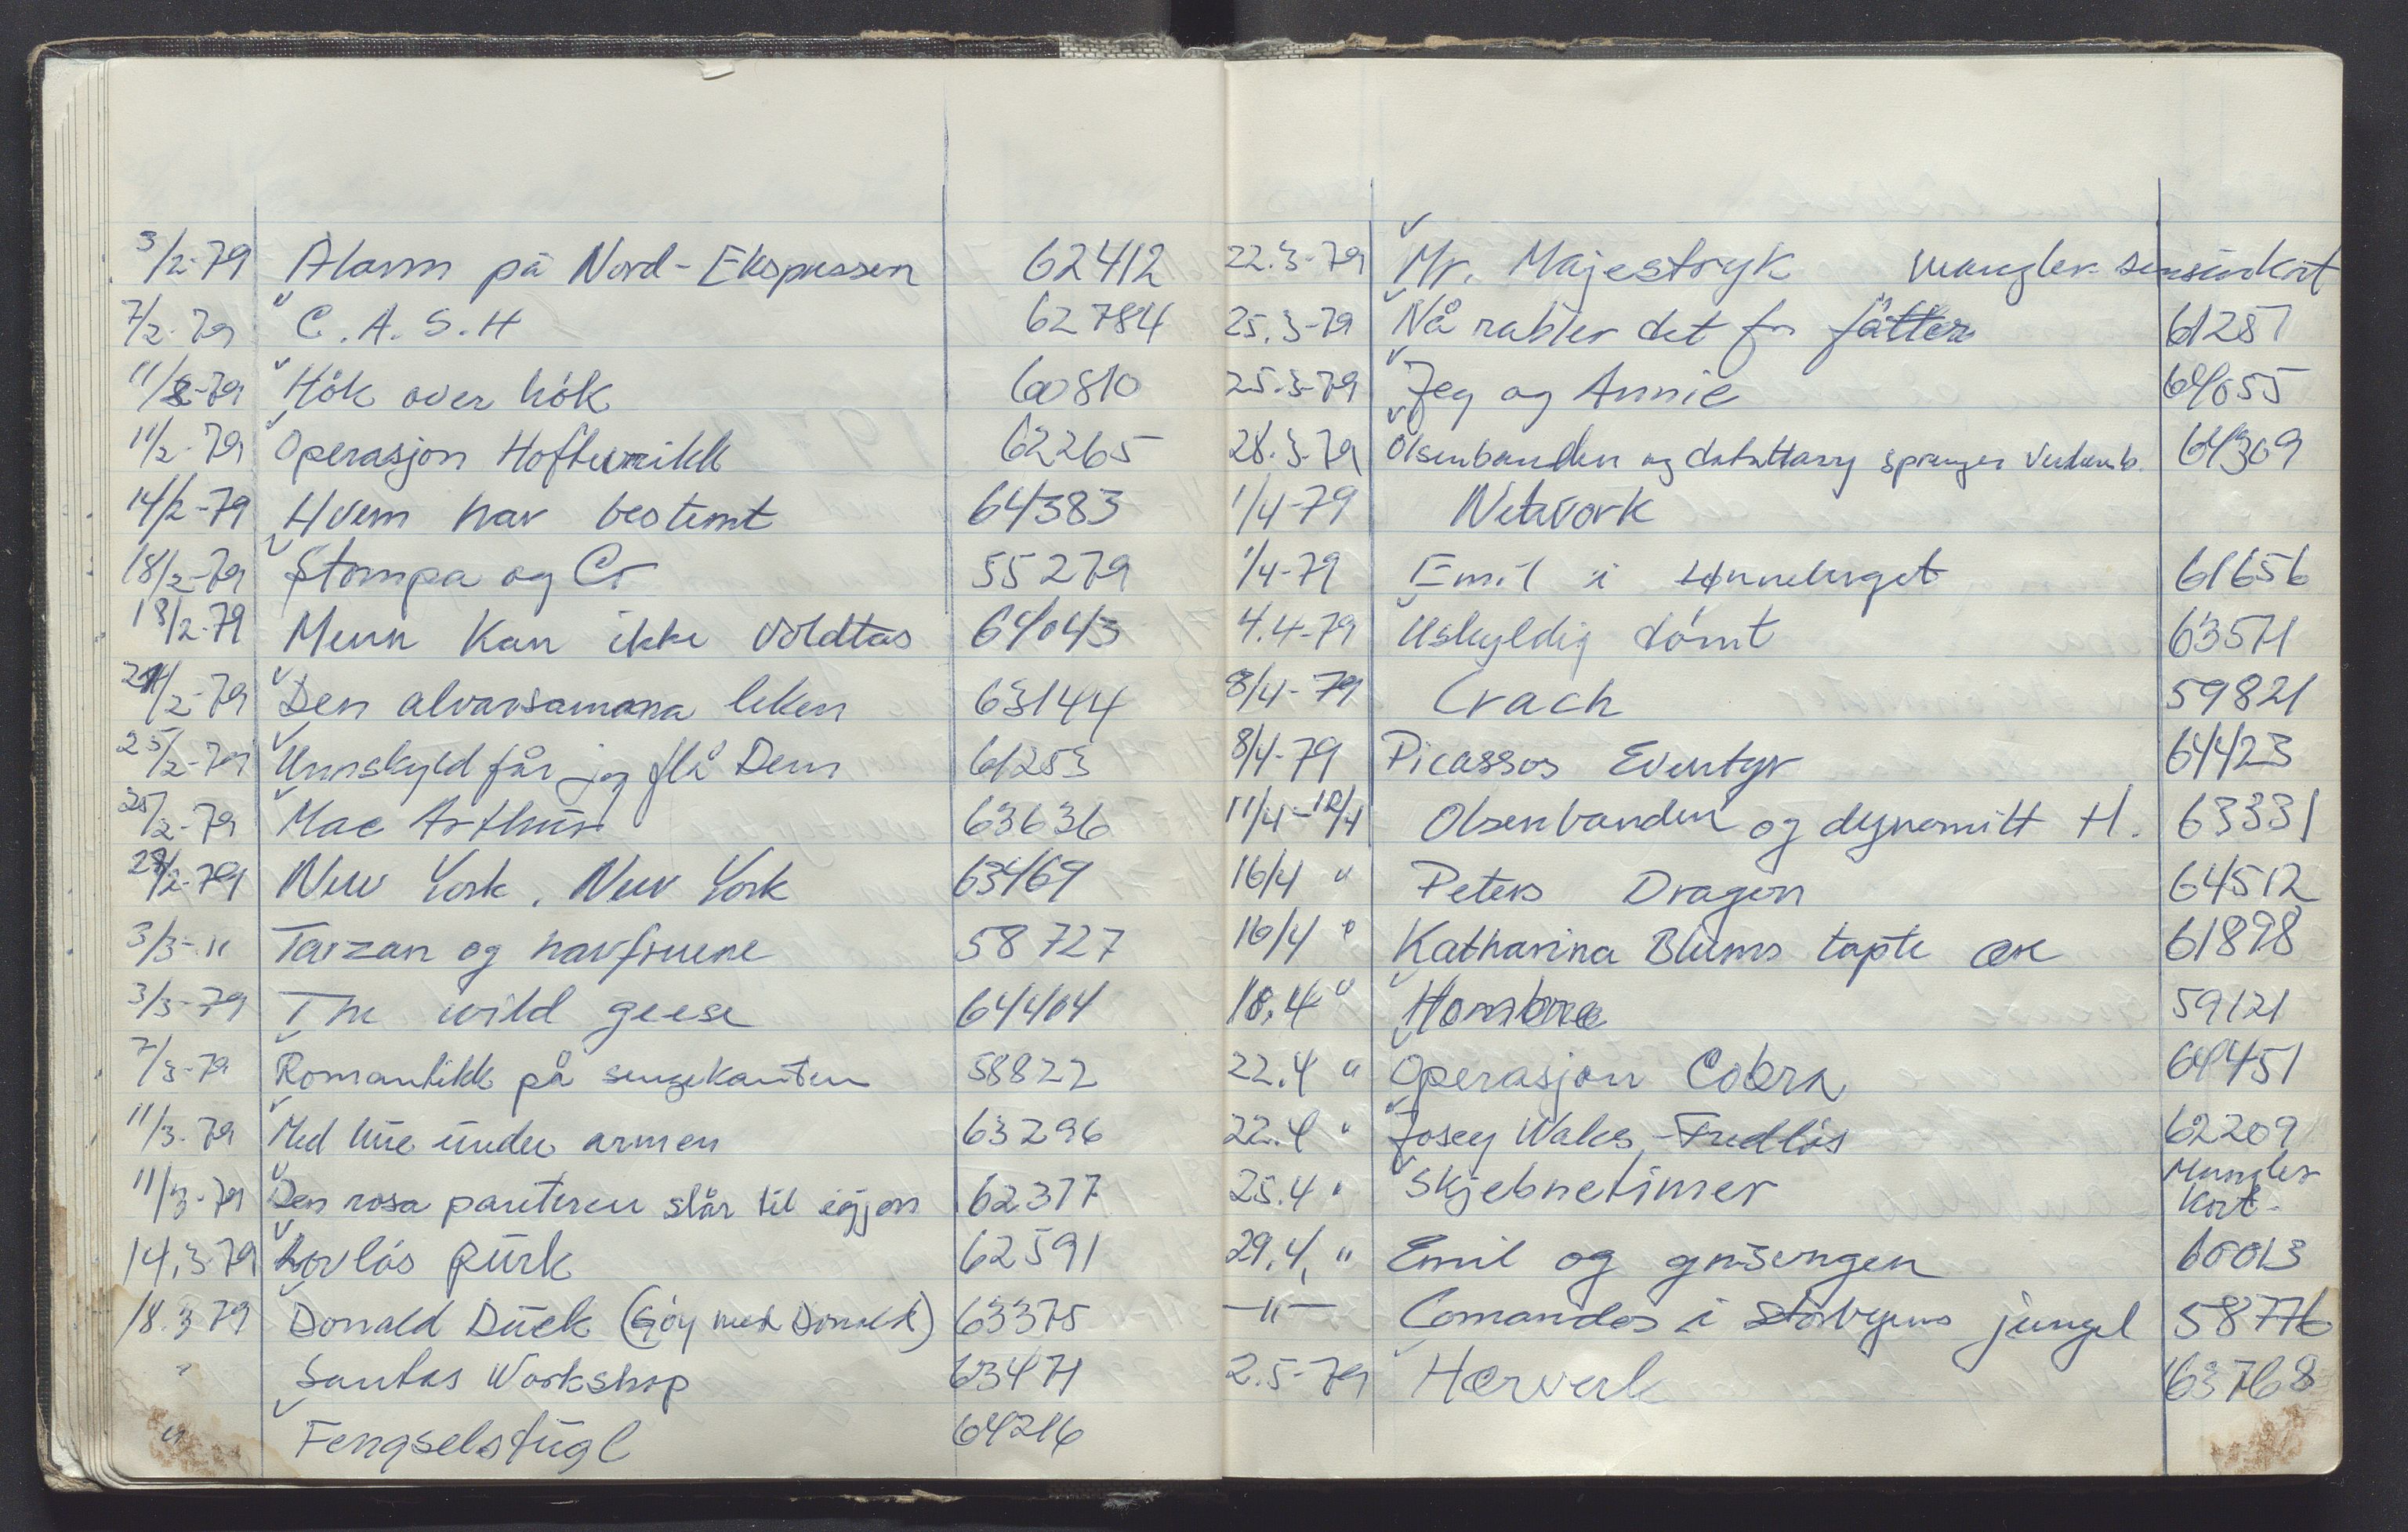 3/2-79 Alarm på Nord-Ekspressen 62412
7/2-79 C.A.S.H 62784
11/2-79 Hök over hök 60810
11/2-79 Operasjon Hofteurikk 62265
14/2-79 Hvem har bestemt 64383
18/2-79 Stompa og Co 55279
18/2-79 Menn kan ikke voldtas 64043
21/2-79 Den alvarsamma leken 63144
25/2-79 Unnskyld får jeg flå Dem 61253
25/2-79 Mac Arthur 63636
28/2-79 New York, New York 63469
3/3-" Tarzan og havfruene 58727
3/3-79 The wild geese 64404
7/3-79 Romantikk på sengekanten 58822
11/3-79 Med lue under armen 63296
11/3-79 Den rosa panteren slår til igjen 62377
14.3-79 Lovlös purk 62591
18.3 79 Donald Duck (Göy med Donald) 63375
" Santas Workshop 63471
" Fengselsfugl 64216
22.3-79 Mr. Majestryk mangler sensurkort
25.3-79 Nå rabler det for fatter 61287
25.3-79 Jeg og Annie 64055
28.3-79 Olsenbanden og datattary sprenger 64309
1/4-79 Network
1/4-79 Emil i Lønneberget 61656
4.4-79 Uskyldig dömt 63571
8/4-79 Crach 59821
8/4-79 Picassos Eventyr 64423
11/4-12/4 Olsenbanden og dynamitt H. 63331
16/4 " Peters Dragon 64512
16/4 " Katharina Blums tapte ære 61898
18.4 " Hombre 59121
22.4 " Operasjon Cobra 64451
22.4 " Josey Wales-Fredlös 62209
25.4 " Skjebnetimer Mangler kort-
29.4, " Emil og grisungen 60013
-"- Comandos i storbyens jungel 58776
2.5-79 Hærverk 63768